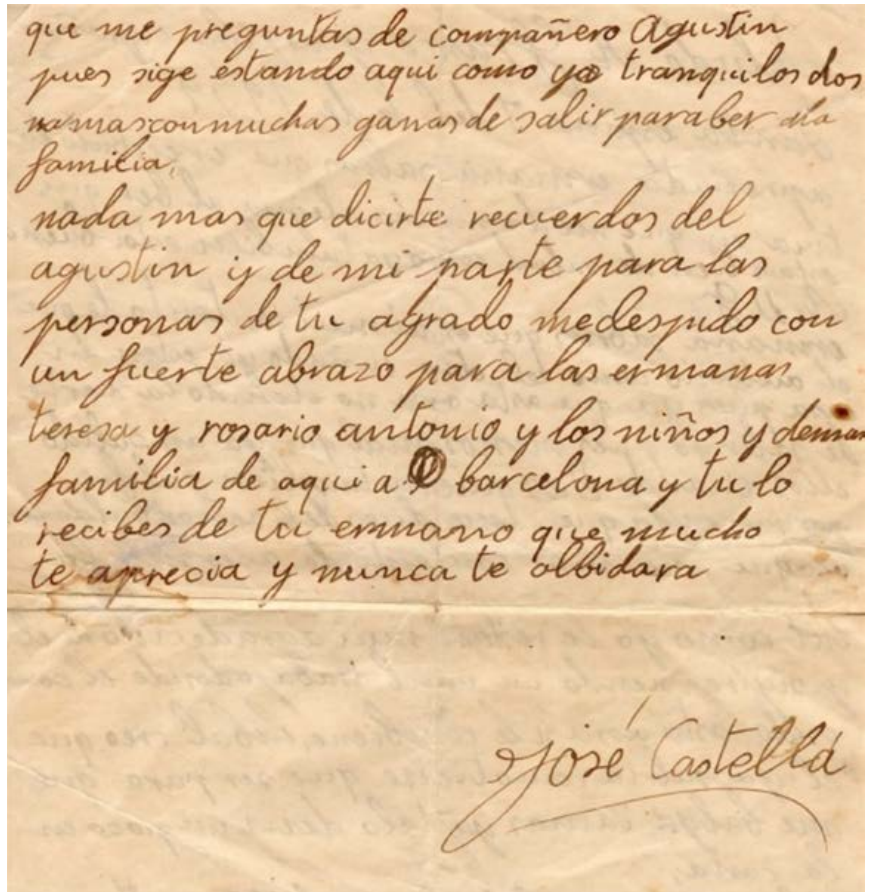 que me preguntas de compañero Agustin
pues sige estando aqui como yo tranquilos dos
na mas con muchas ganas de salir para ber a la
familia.
nada mas que dicirte recuerdos del
agustin y de mi parte para las
personas de tu agrado me despido con
un fuerte abrazo para las ermanas
teresa y rosario antonio y los niños y demas
familia de aqui a barcelona y tu lo
recibes de tu ermano que mucho
te aprecia y nunca te olbidara
José Castellá